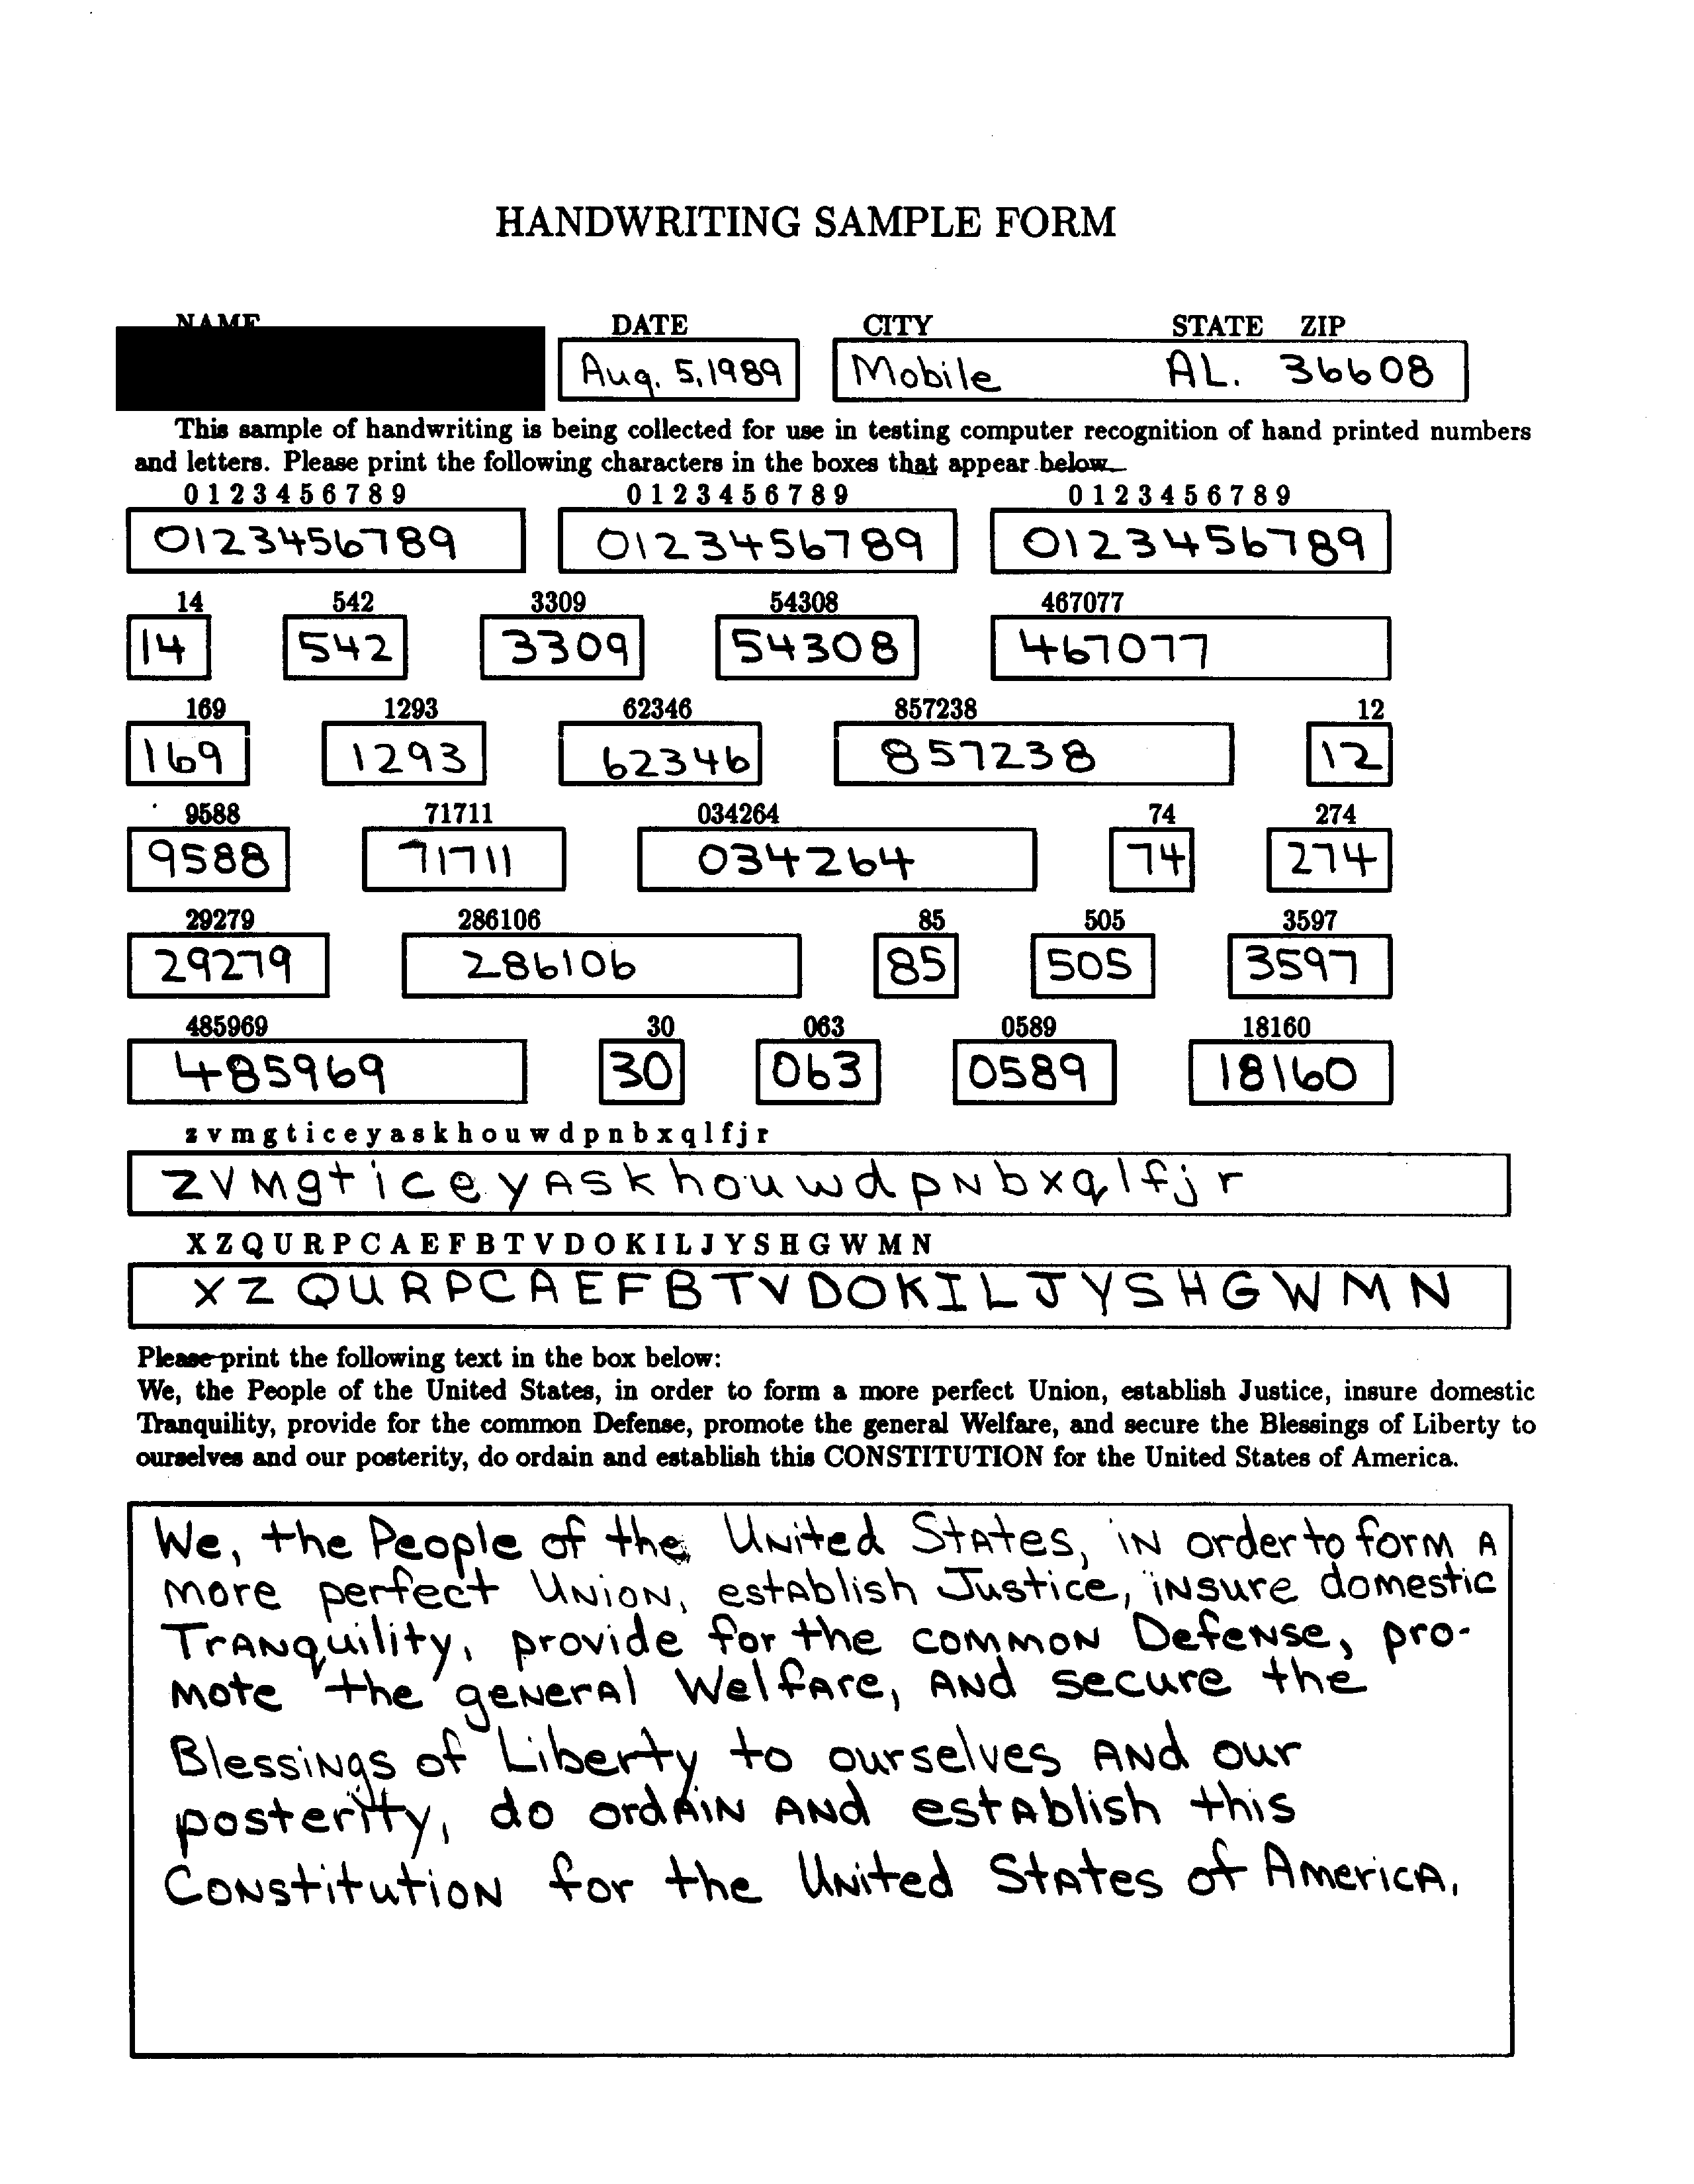 HANDWRITING SAMPLE FORM
NAME DATE CITY STATE ZIP
Aug. 5, 1989 Mobile AL. 36608
This sample of handwriting is being collected for use in testing computer recognition of hand printed numbers
and letters. Please print the following characters in the boxes that appear below.
0 1 2 3 4 5 6 7 8 9 0 1 2 3 4 5 6 7 8 9 0 1 2 3 4 5 6 7 8 9
0123456789 0123456789 0123456789
14 542 3309 54308 467077
14 542 3309 54308 467077
169 1293 62346 857238 12
169 1293 62346 857238 12
9588 71711 034264 74 274
9588 71711 034264 74 274
29279 286106 85 505 3597
29279 286106 85 505 3597
485969 30 063 0589 18160
485969 30 063 0589 18160
z v m g t i c e y a s k h o u w d p n b x q l f j r
z v m g t i c e y A s k h o u w d p N b x q l f j r
X Z Q U R P C A E F B T V D O K I L J Y S H G W M N
X Z Q U R P C A E F B T V D O K I L J Y S H G W M N
Please print the following text in the box below:
We, the People of the United States, in order to form a more perfect Union, establish Justice, insure domestic
Tranquility, provide for the common Defense, promote the general Welfare, and secure the Blessings of Liberty to
ourselves and our posterity, do ordain and establish this CONSTITUTION for the United States of America.
We, the People of the United States, in order to form a
more perfect Union, establish Justice, insure domestic
Tranquility, provide for the common Defense, pro-
mote the general Welfare, and secure the
Blessings of Liberty to ourselves and our
posterity, do ordain and establish this
Constitution for the United States of America.